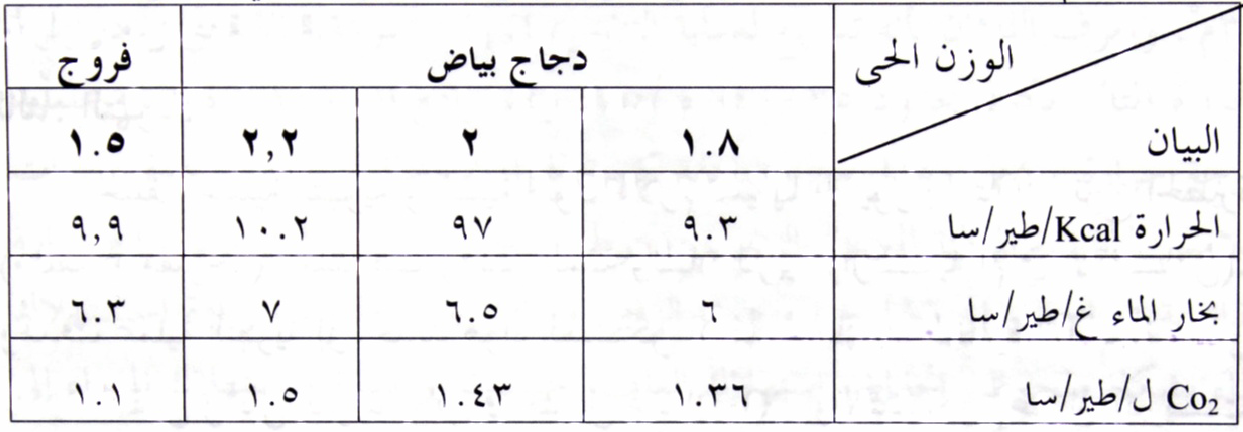 الوزن الحى دجاج بياض فروج
البيان ١.٨ ٢ ٢,٢ ١.٥
الحرارة Kcal/طير/سا ٩.٣ ٩٧ ١٠.٢ ٩,٩
بخار الماء غ/طير/سا ٦ ٦.٥ ٧ ٦.٣
Co₂ ل/طير/سا ١.٣٦ ١.٤٣ ١.٥ ١.١